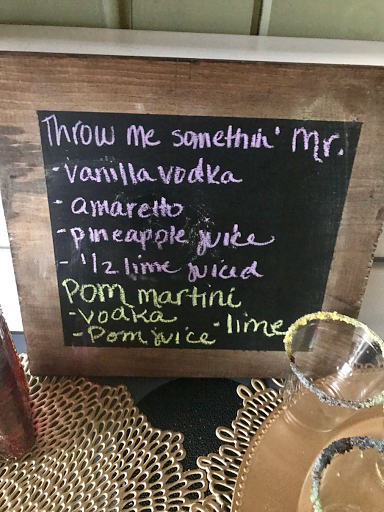 Throw me somethin' Mr.
- vanilla vodka
- amaretto
- pineapple juice
- 1/2 lime juiced
Pom martini
- vodka
- Pom juice · lime